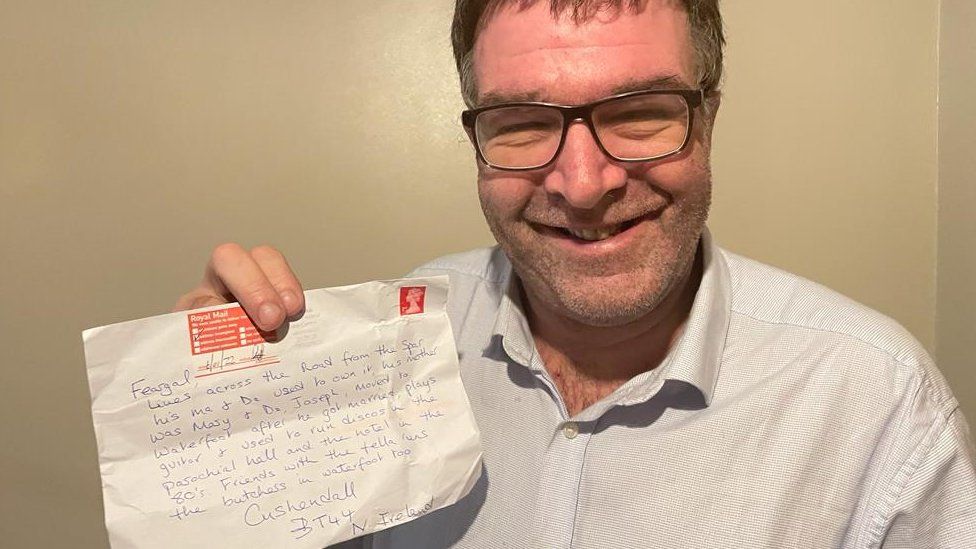 Royal Mail
4/01/22
Feargal,
Lives across the Road from the Spar
his ma & Da used to own it, his mother
was Mary & Da, Joseph, moved to
Waterfoot after he got married, plays
guitar & used to run discos in the
parochial hall and the hotel in the
80's. Friends with the fella runs
the butchers in waterfoot too
Cushendall
BT44
N. Ireland